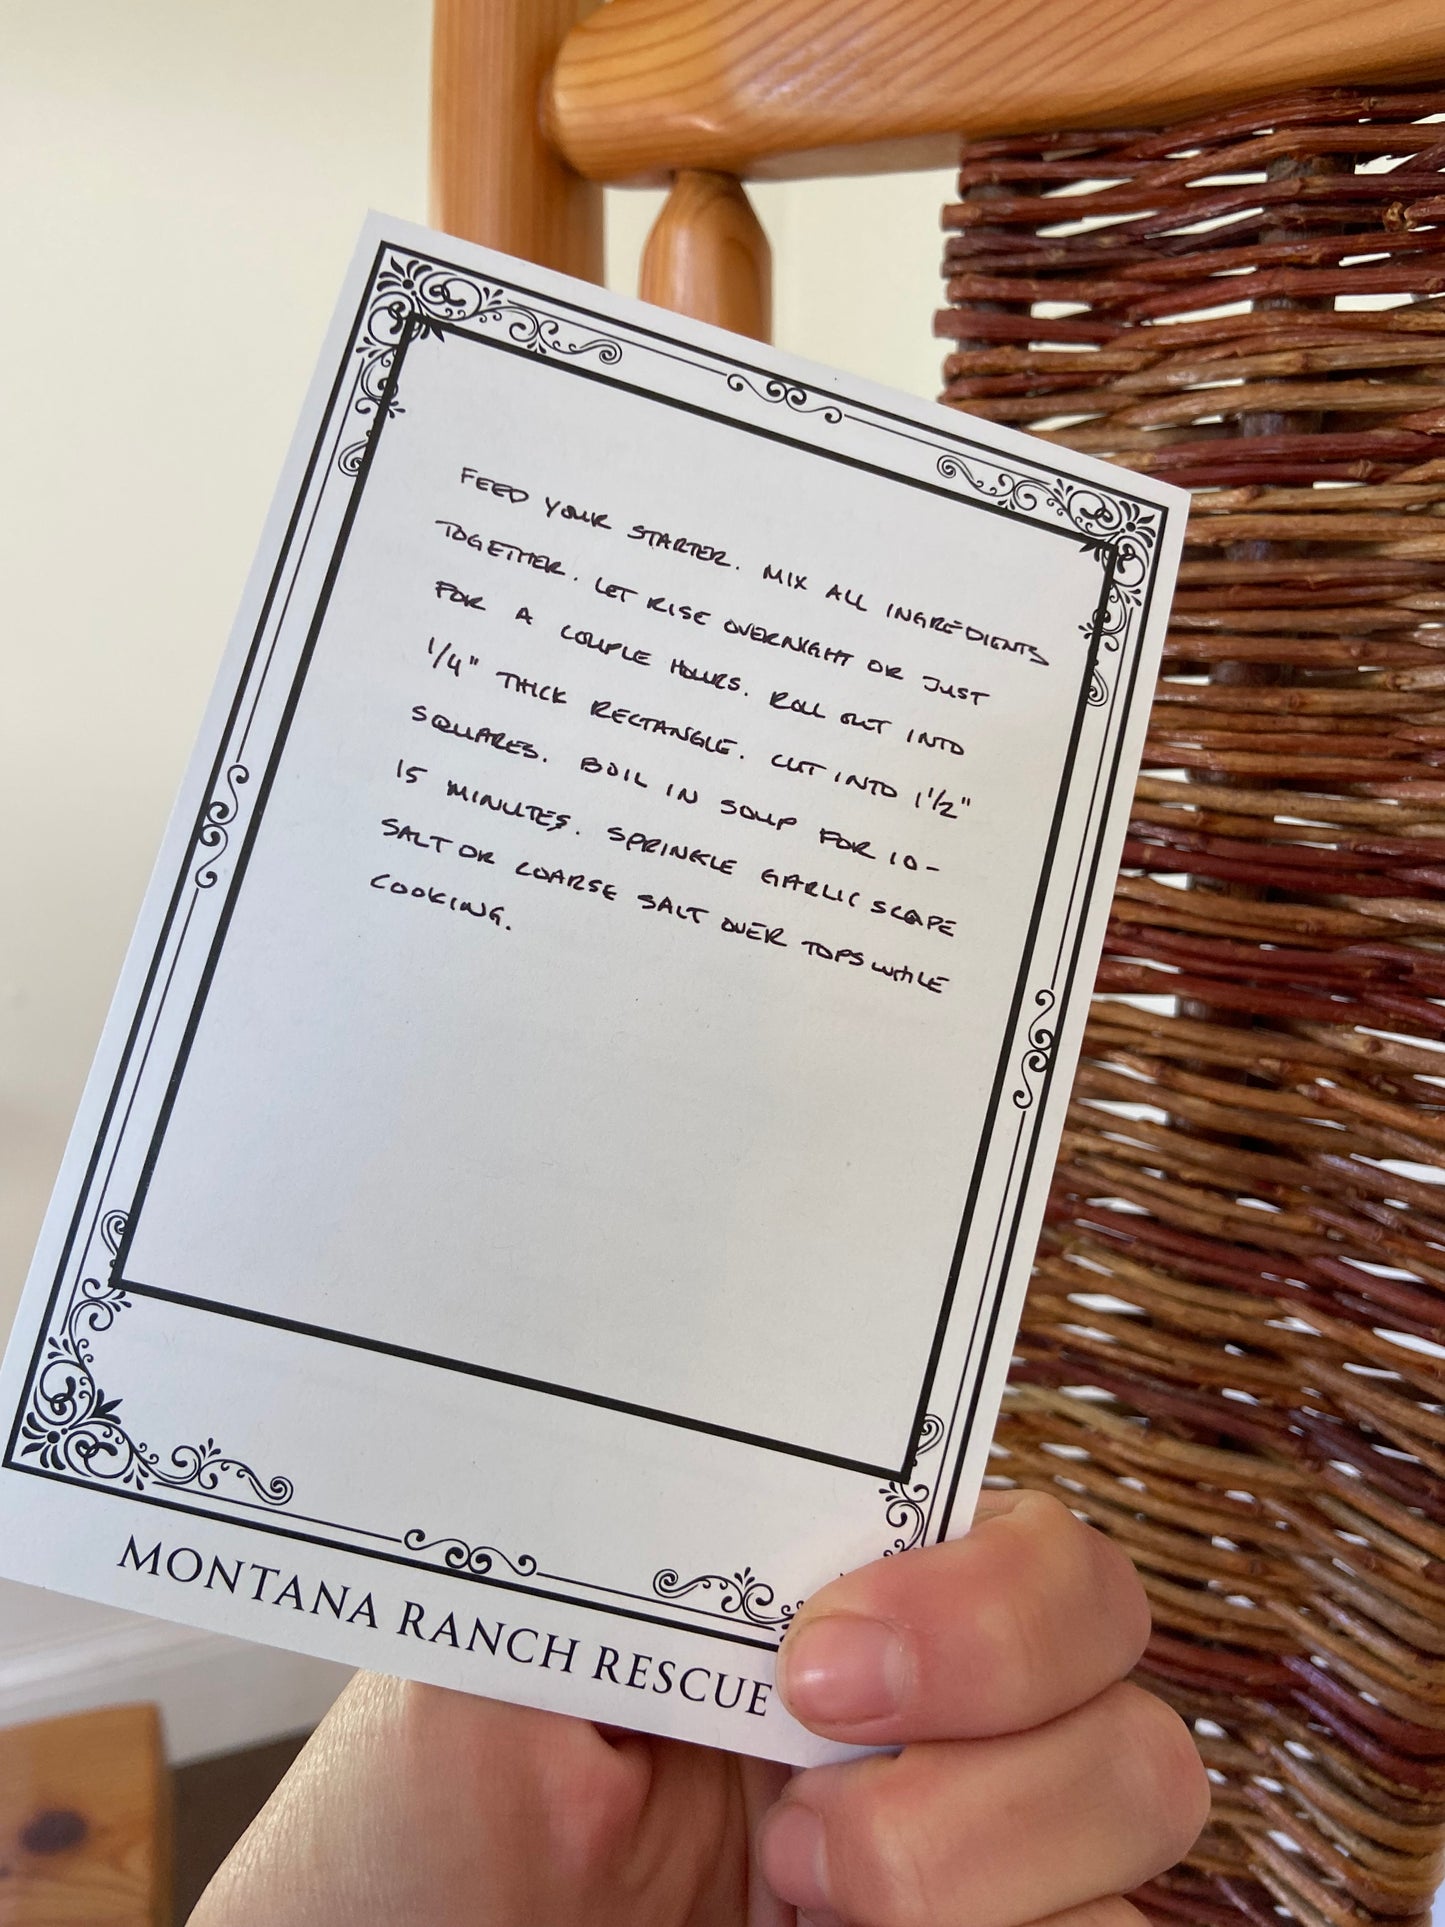 FEED YOUR STARTER. MIX ALL INGREDIENTS
TOGETHER. LET RISE OVERNIGHT OR JUST
FOR A COUPLE HOURS. ROLL OUT INTO
1/4" THICK RECTANGLE. CUT INTO 1 1/2"
SQUARES. BOIL IN SOUP FOR 10-
15 MINUTES. SPRINKLE GARLIC SCAPE
SALT OR COARSE SALT OVER TOPS WHILE
COOKING.
MONTANA RANCH RESCUE